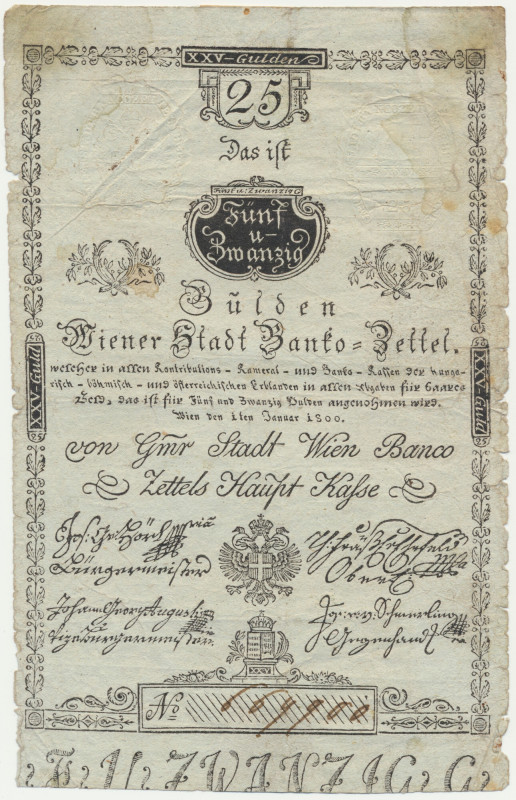 XXV-Gulden
25
Das ist
Fünf u: Zwanzig G
Fünf
u-
Zwanzig
Gulden
Wiener Stadt Banko=Zettel.
welcher in allen Kontributions - Kameral - und Banko - Kassen der hunga-
risch - böhmisch - und österreichischen Erblanden in allen Abgaben für baares
Geld, das ist für Fünf und Zwanzig Gulden angenohmen wird.
Wien den 1ten Januar 1800.
XXV-Guld
25
XXV-Guld
25
von Gmr Stadt Wien Banco
Zettels Haupt Kasse
Bürgermeister
Johann Georg Augusti
Vizebürgermeister
Jos: v. Schmerling
Gegenhand
XXV
No
F U ZWANZIG G